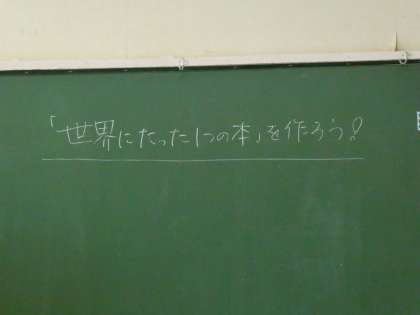 「世界にたった1つの本」を作ろう!